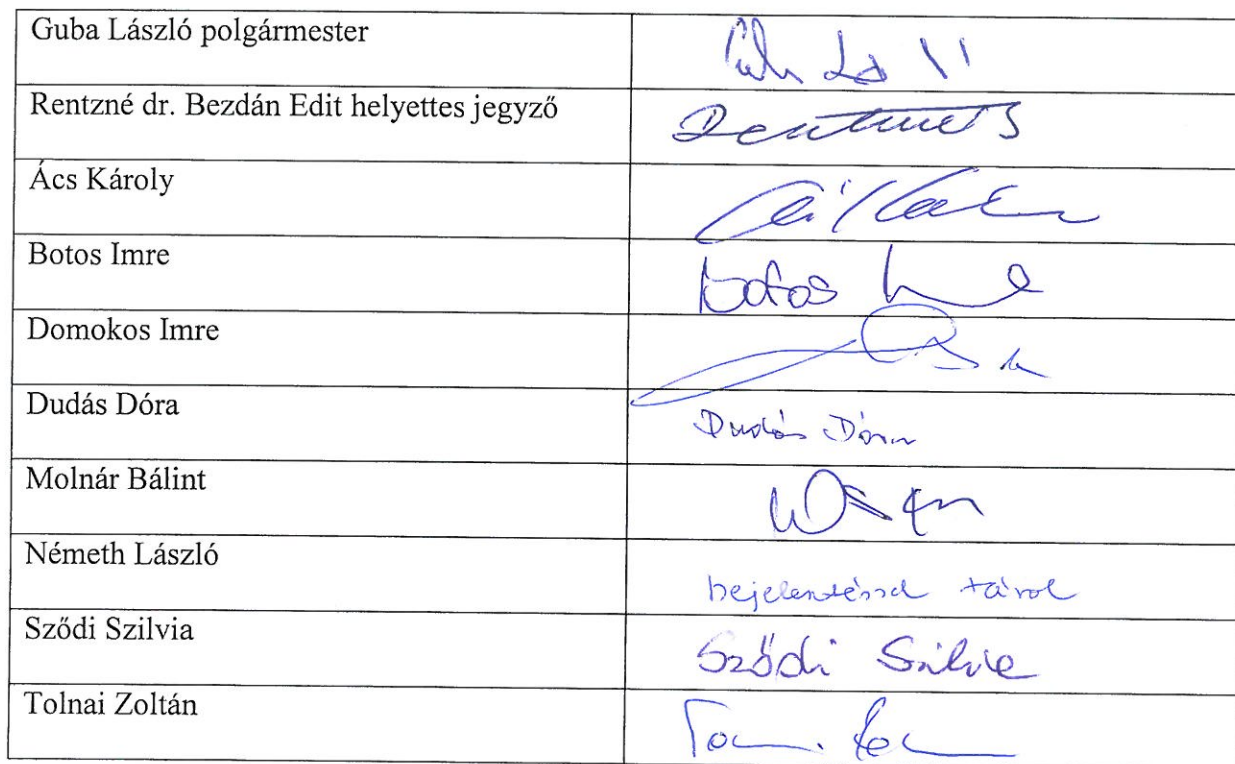 Guba László polgármester
Rentzné dr. Bezdán Edit helyettes jegyző
Ács Károly
Botos Imre
Botos
Domokos Imre
Dudás Dóra
Dudás Dóra
Molnár Bálint
Németh László
bejelentéssel távol
Sződi Szilvia
Sződi Szilvia
Tolnai Zoltán